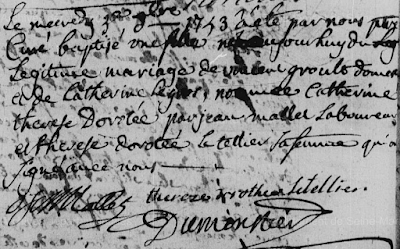 Le mercredy 9bre 1753 a été par nous
Curé baptisé une fille née aujourhuy du
Legitime mariage de vincent groult
et de Catherine nommée Catherine
therese Dorotée par jean mallet Laboureur
et therese dorotée le tellier sa femme qui a
signé avec nous
Mallet therese Dorothée Letellier
Dumonstier